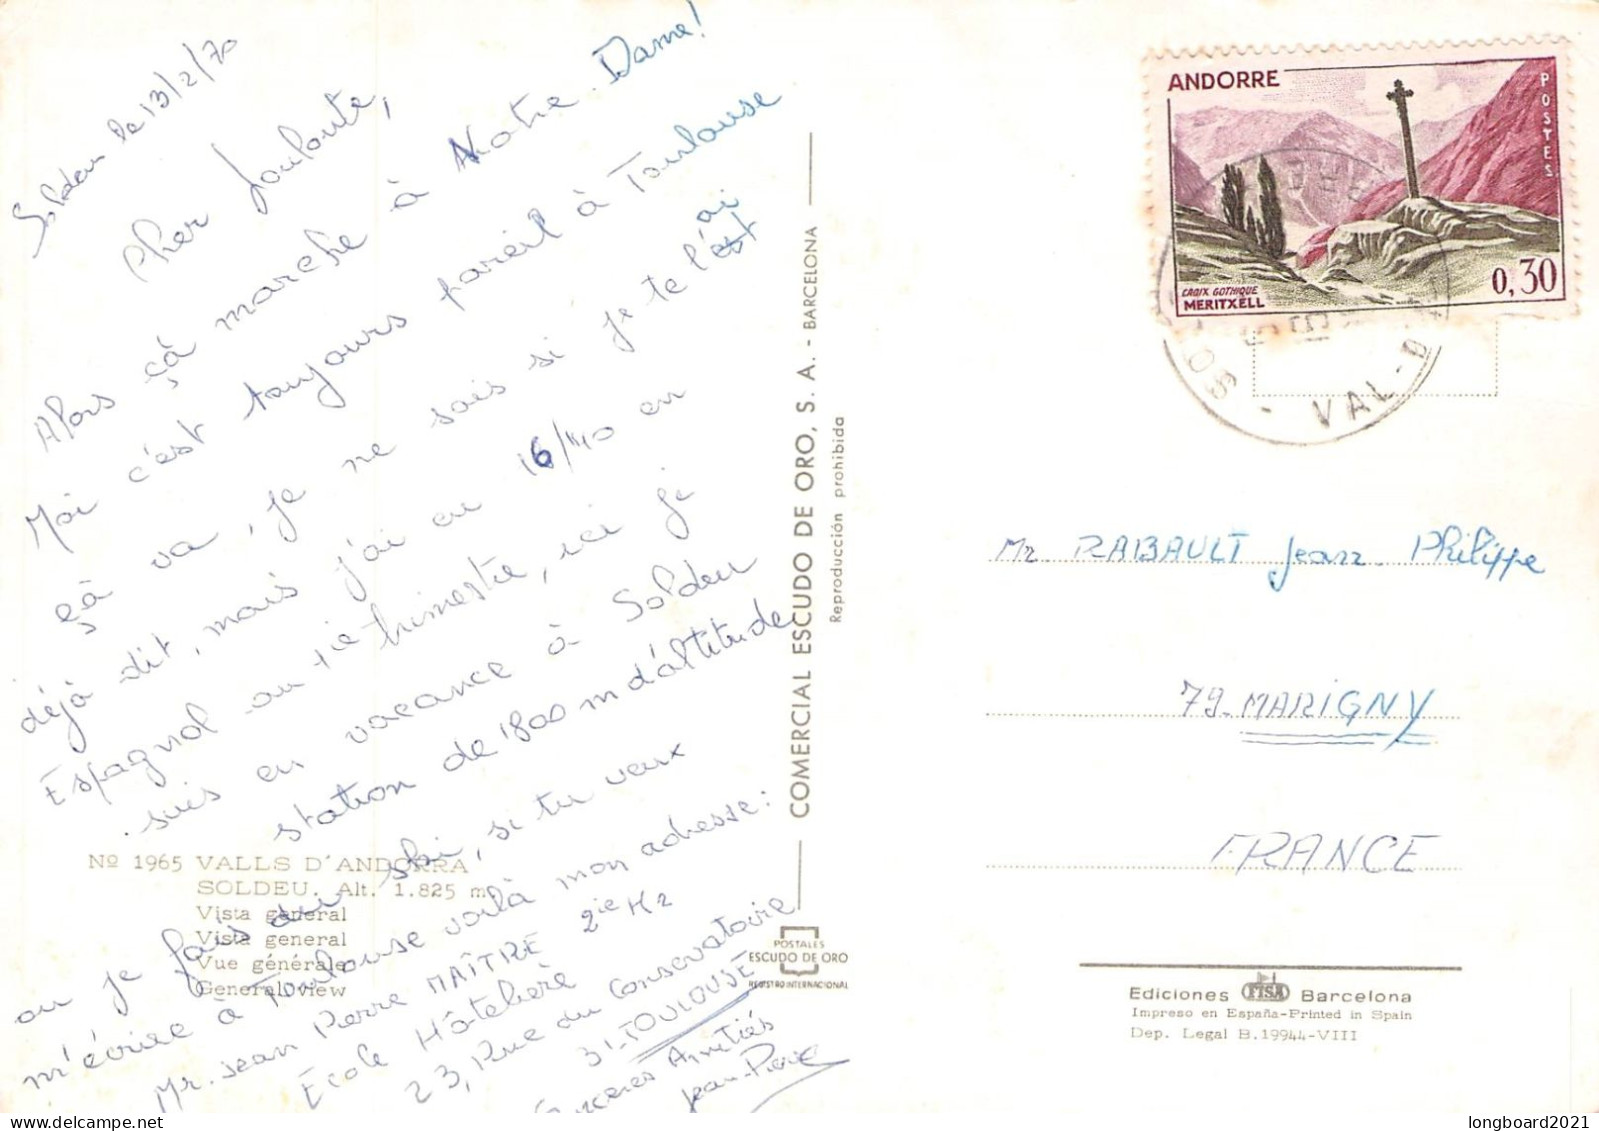 Soldeu le 13/2/70
Cher Louloute,
Alors çà marche à Notre-Dame!
Moi c'est toujours pareil à Toulouse
çà va, je ne sais si je te l'ai
déjà dit, mais j'ai eu 16/20 en
Espagnol au 1ie trimestre, ici je
suis en vacance à Soldeu
station de 1800 m d'altitude
ou je fais du ski, si tu veux
m'écrire à Toulouse voilà mon adresse:
Mr. Jean Pierre MAÎTRE 2ie H2
École Hôtelière
23, Rue du Conservatoire
31-TOULOUSE
Sincères Amitiés
Jean-Pierre
Nº 1965 VALLS D'ANDORRA
SOLDEU. Alt. 1.825 m.
Vista general
Vista general
Vue générale
General view
COMERCIAL ESCUDO DE ORO, S. A. - BARCELONA
Reproducción prohibida
POSTALES
ESCUDO DE ORO
REGISTRO INTERNACIONAL
ANDORRE
POSTES
CROIX GOTHIQUE
MERITXELL
0,30
VAL-D
Mr RABAULT Jean-Philippe
79-MARIGNY
FRANCE
Ediciones FISA Barcelona
Impreso en España-Printed in Spain
Dep. Legal B.19944-VIII
longboard2021